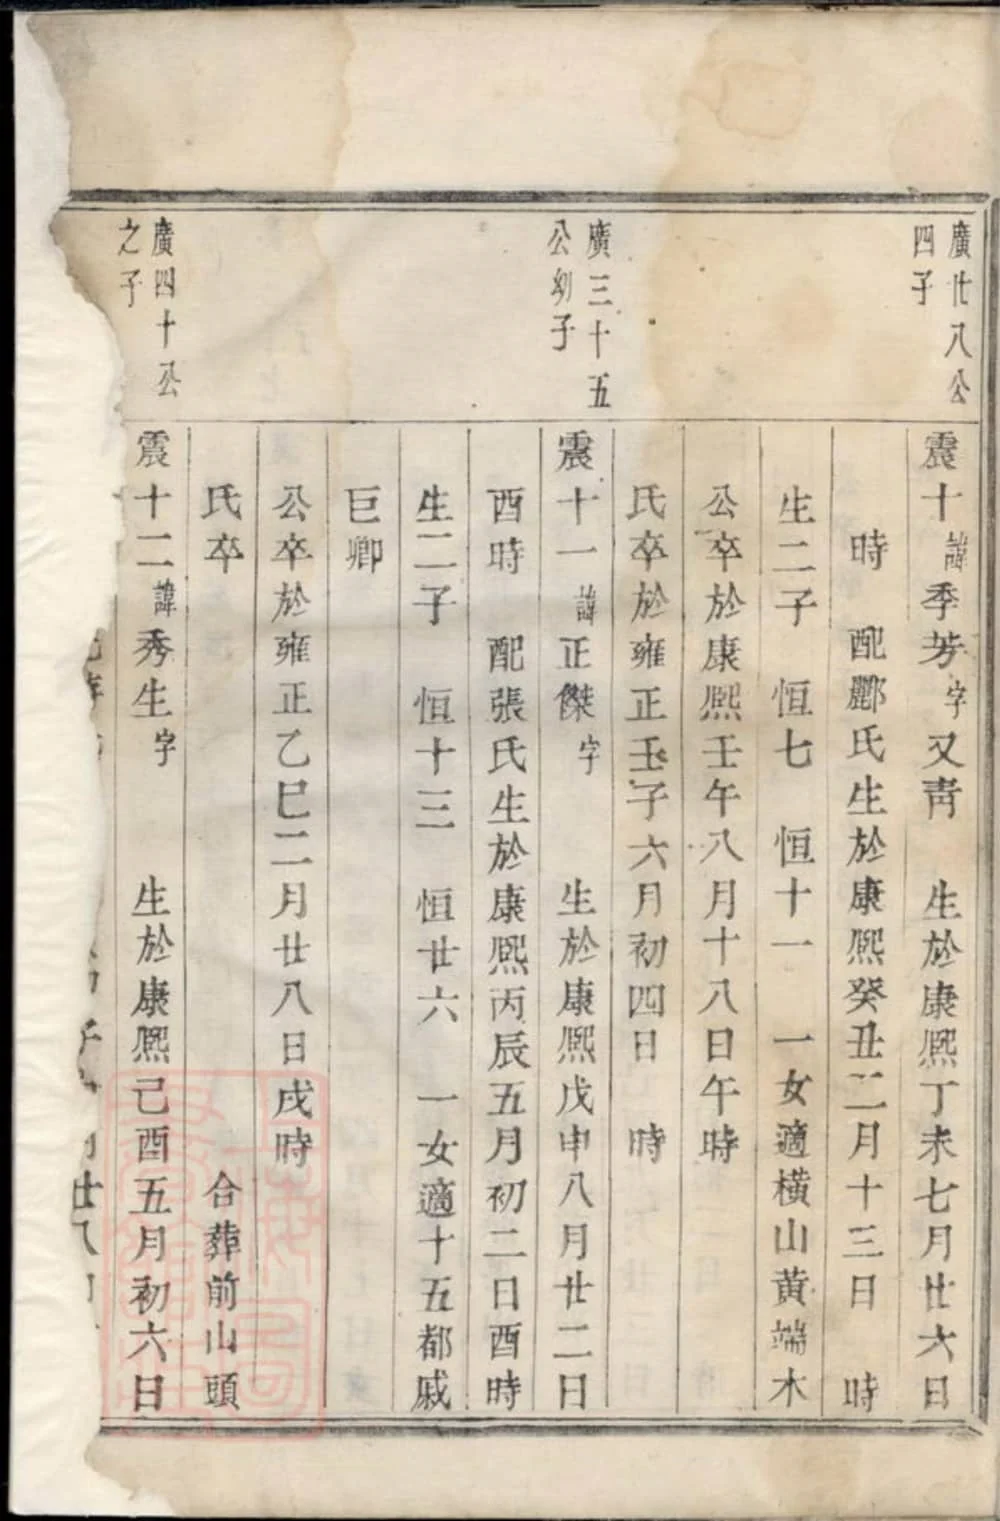 廣廿八公
四子
震十諱季芳字又靑 生於康熙丁未七月廿六日
時 配酈氏生於康熙癸丑二月十三日 時
生二子 恒七 恒十一 一女適橫山黃端木
公卒於康熙壬午八月十八日午時
氏卒於雍正壬子六月初四日 時
廣三十五
公幼子
震十一諱正傑字 生於康熙戊申八月廿二日
酉時 配張氏生於康熙丙辰五月初二日酉時
生二子 恒十三 恒廿六 一女適十五都戚
巨卿
公卒於雍正乙巳二月廿八日戌時
氏卒 合葬前山頭
廣四十公
之子
震十二諱秀生字 生於康熙己酉五月初六日
廿八日